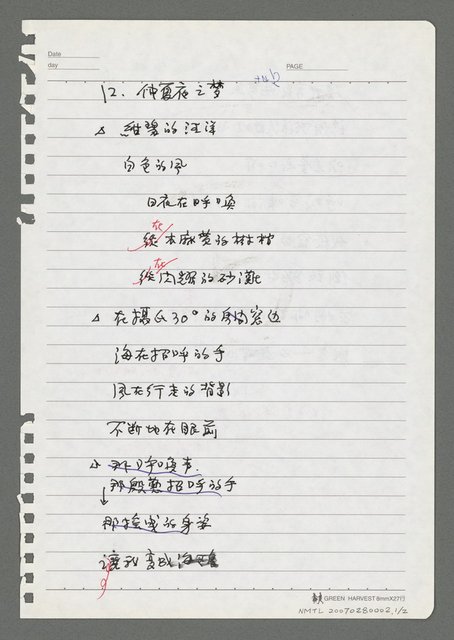 Date
day
PAGE
12. 仲夏夜之梦
△ 維碧的汪洋
白色的風
日夜在呼喚
在
木麻黃的樹梢
在
閃耀的砂灘
△ 在攝氏30°的房間窓边
海在招呼的手
風在行走的背影
不断地在眼前
△ 那呼喚声.
那殷懃招呼的手
那搖曳的身姿
讓我变成
GREEN HARVEST 8mmX27行
NMTL 20070280002, 1/2